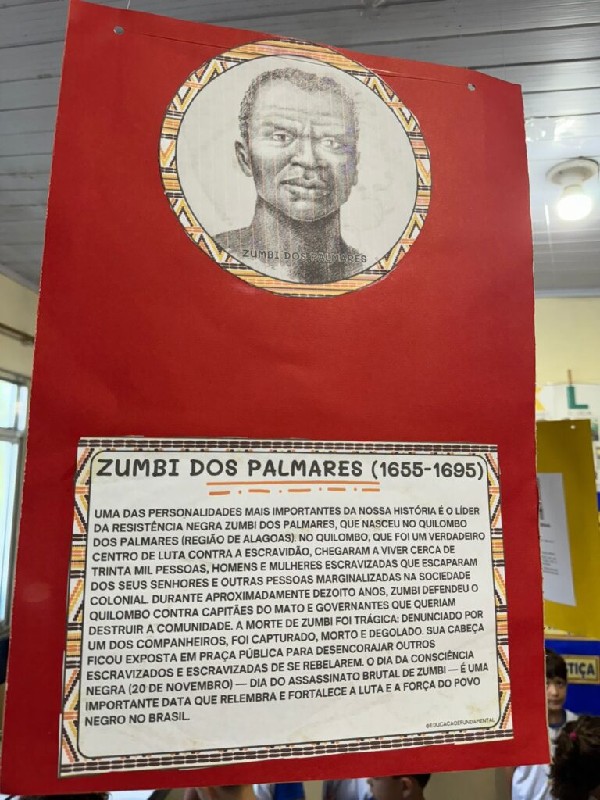 ZUMBI DOS PALMARES
ZUMBI DOS PALMARES (1655-1695)
UMA DAS PERSONALIDADES MAIS IMPORTANTES DA NOSSA HISTÓRIA É O LÍDER
DA RESISTÊNCIA NEGRA ZUMBI DOS PALMARES, QUE NASCEU NO QUILOMBO
DOS PALMARES (REGIÃO DE ALAGOAS). NO QUILOMBO, QUE FOI UM VERDADEIRO
CENTRO DE LUTA CONTRA A ESCRAVIDÃO, CHEGARAM A VIVER CERCA DE
TRINTA MIL PESSOAS, HOMENS E MULHERES ESCRAVIZADAS QUE ESCAPARAM
DOS SEUS SENHORES E OUTRAS PESSOAS MARGINALIZADAS NA SOCIEDADE
COLONIAL. DURANTE APROXIMADAMENTE DEZOITO ANOS, ZUMBI DEFENDEU O
QUILOMBO CONTRA CAPITÃES DO MATO E GOVERNANTES QUE QUERIAM
DESTRUIR A COMUNIDADE. A MORTE DE ZUMBI FOI TRÁGICA: DENUNCIADO POR
UM DOS COMPANHEIROS, FOI CAPTURADO, MORTO E DEGOLADO. SUA CABEÇA
FICOU EXPOSTA EM PRAÇA PÚBLICA PARA DESENCORAJAR OUTROS
ESCRAVIZADOS E ESCRAVIZADAS DE SE REBELAREM. O DIA DA CONSCIÊNCIA
NEGRA (20 DE NOVEMBRO) — DIA DO ASSASSINATO BRUTAL DE ZUMBI — É UMA
IMPORTANTE DATA QUE RELEMBRA E FORTALECE A LUTA E A FORÇA DO POVO
NEGRO NO BRASIL.
L